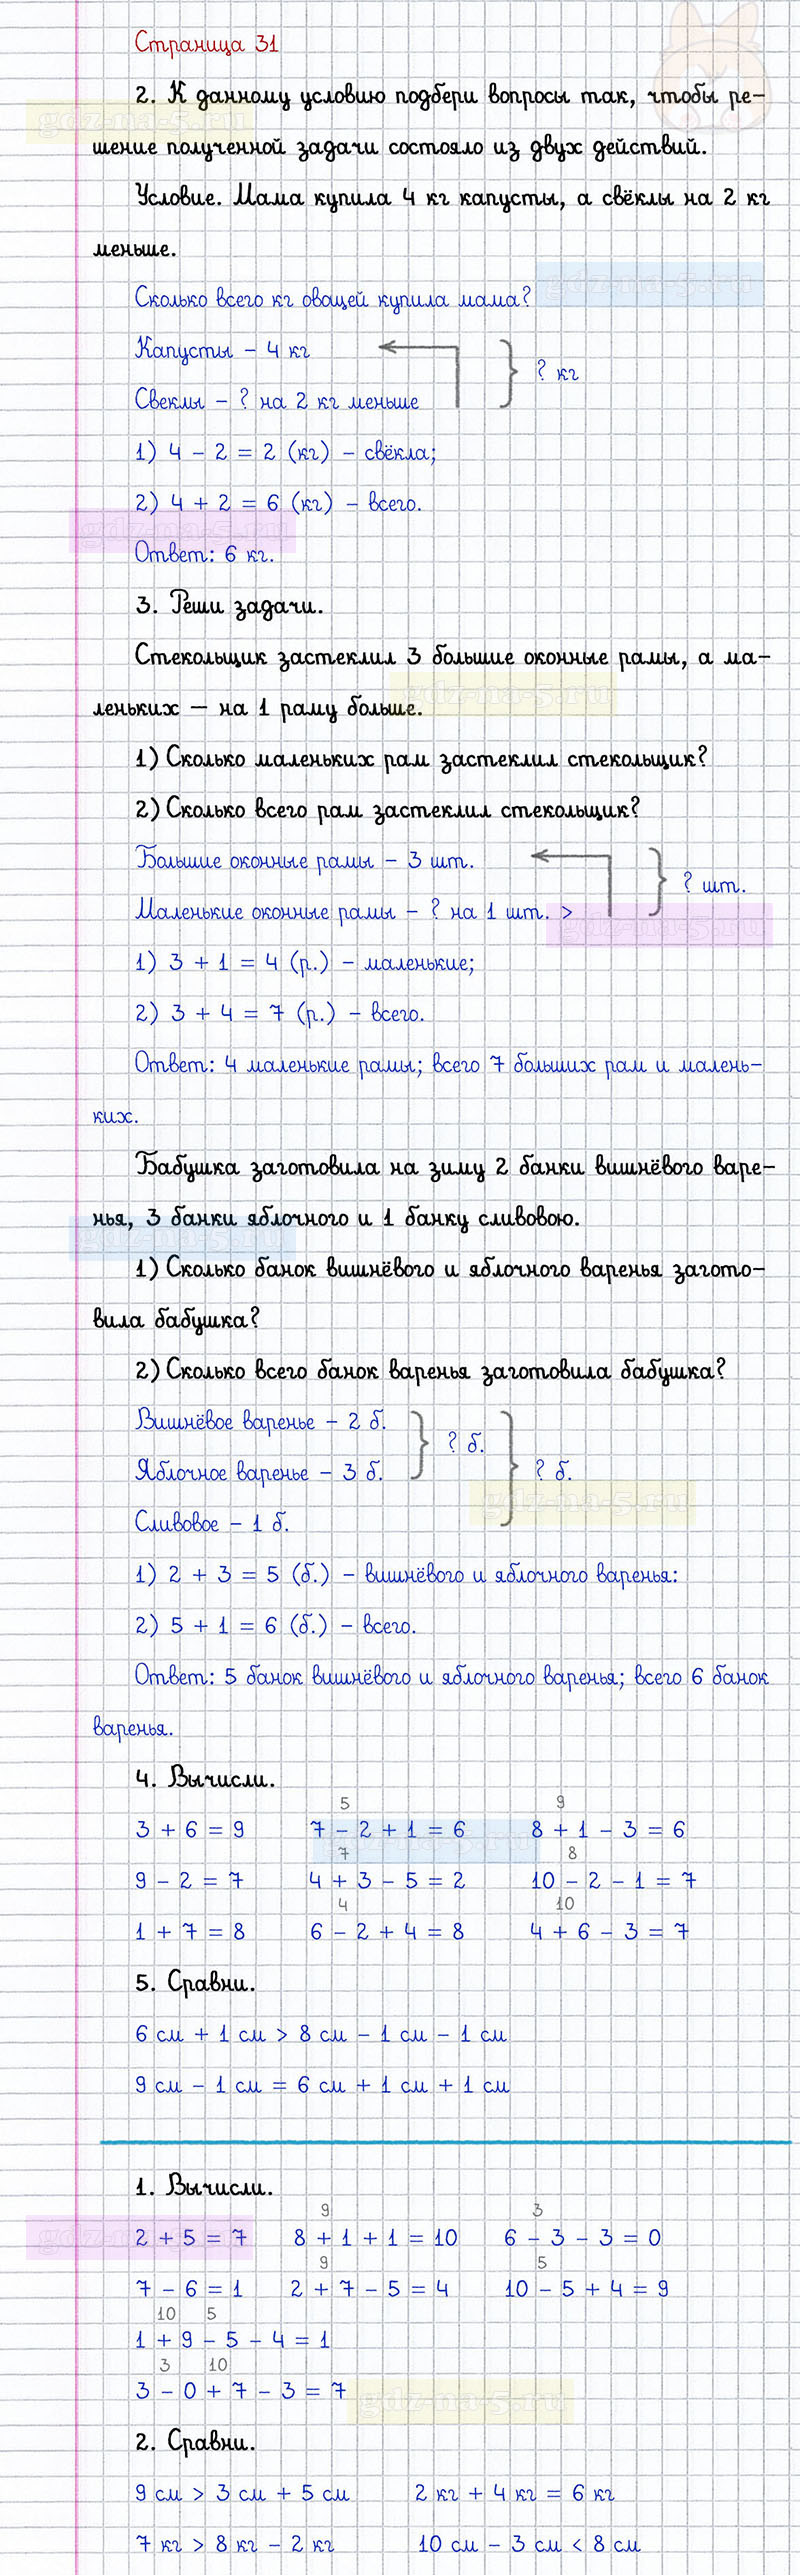 Страница 31
2. К данному условию подбери вопросы так, чтобы ре-
gdz-na-5.ru
шение полученной задачи состояло из двух действий.
Условие. Мама купила 4 кг капусты, а свёклы на 2 кг
меньше.
Сколько всего кг овощей купила мама?
gdz-na-5.ru
Капусты – 4 кг
? кг
Свеклы – ? на 2 кг меньше
1) 4 – 2 = 2 (кг) – свёкла;
2) 4 + 2 = 6 (кг) – всего.
gdz-na-5.ru
Ответ: 6 кг.
3. Реши задачи.
Стекольщик застеклил 3 большие оконные рамы, а ма-
gdz-na-5.ru
леньких – на 1 раму больше.
1) Сколько маленьких рам застеклил стекольщик?
2) Сколько всего рам застеклил стекольщик?
Большие оконные рамы – 3 шт.
? шт.
Маленькие оконные рамы – ? на 1 шт. >
gdz-na-5.ru
1) 3 + 1 = 4 (р.) – маленькие;
2) 3 + 4 = 7 (р.) – всего.
Ответ: 4 маленькие рамы; всего 7 больших рам и малень-
ких.
Бабушка заготовила на зиму 2 банки вишнёвого варе-
нья, 3 банки яблочного и 1 банку сливовою.
gdz-na-5.ru
1) Сколько банок вишнёвого и яблочного варенья загото-
вила бабушка?
2) Сколько всего банок варенья заготовила бабушка?
Вишнёвое варенье – 2 б.
? б.
Яблочное варенье – 3 б.
? б.
gdz-na-5.ru
Сливовое – 1 б.
1) 2 + 3 = 5 (б.) – вишнёвого и яблочного варенья:
2) 5 + 1 = 6 (б.) – всего.
Ответ: 5 банок вишнёвого и яблочного варенья; всего 6 банок
варенья.
4. Вычисли.
5 9
3 + 6 = 9 7 – 2 + 1 = 6 8 + 1 – 3 = 6
gdz-na-5.ru
7 8
9 – 2 = 7 4 + 3 – 5 = 2 10 – 2 – 1 = 7
4 10
1 + 7 = 8 6 – 2 + 4 = 8 4 + 6 – 3 = 7
5. Сравни.
6 см + 1 см > 8 см – 1 см – 1 см
9 см – 1 см = 6 см + 1 см + 1 см
1. Вычисли.
9 3
2 + 5 = 7 8 + 1 + 1 = 10 6 – 3 – 3 = 0
gdz-na-5.ru
9 5
7 – 6 = 1 2 + 7 – 5 = 4 10 – 5 + 4 = 9
10 5
1 + 9 – 5 – 4 = 1
3 10
3 – 0 + 7 – 3 = 7
gdz-na-5.ru
2. Сравни.
9 см > 3 см + 5 см 2 кг + 4 кг = 6 кг
7 кг > 8 кг – 2 кг 10 см – 3 см < 8 см